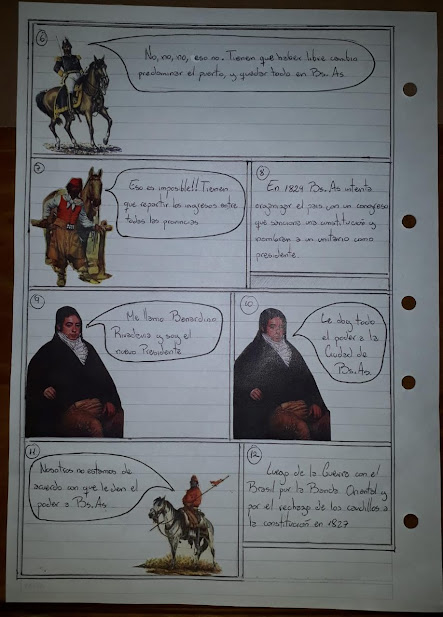 6
No, no, no, eso no. Tienen que haber libre cambio
predominar el puerto, y quedar todo en Bs. As.
7
Eso es imposible!! Tienen
que repartir los ingresos entre
todas las provincias
8
En 1824 Bs. As intenta
organizar el pais con un congreso
que sanciona una constitución y
nombran a un unitario como
presidente.
9
Me llamo Benardino
Rivadavia y soy el
nuevo Presidente
10
Le doy todo
el poder a la
Ciudad de
Bs. As.
11
Nosotros no estamos de
acuerdo con que le den el
poder a Bs. As
12
Luego de la Guerra con el
Brasil por la Banda Oriental y
por el rechazo de los caudillos a
la constitución en 1827